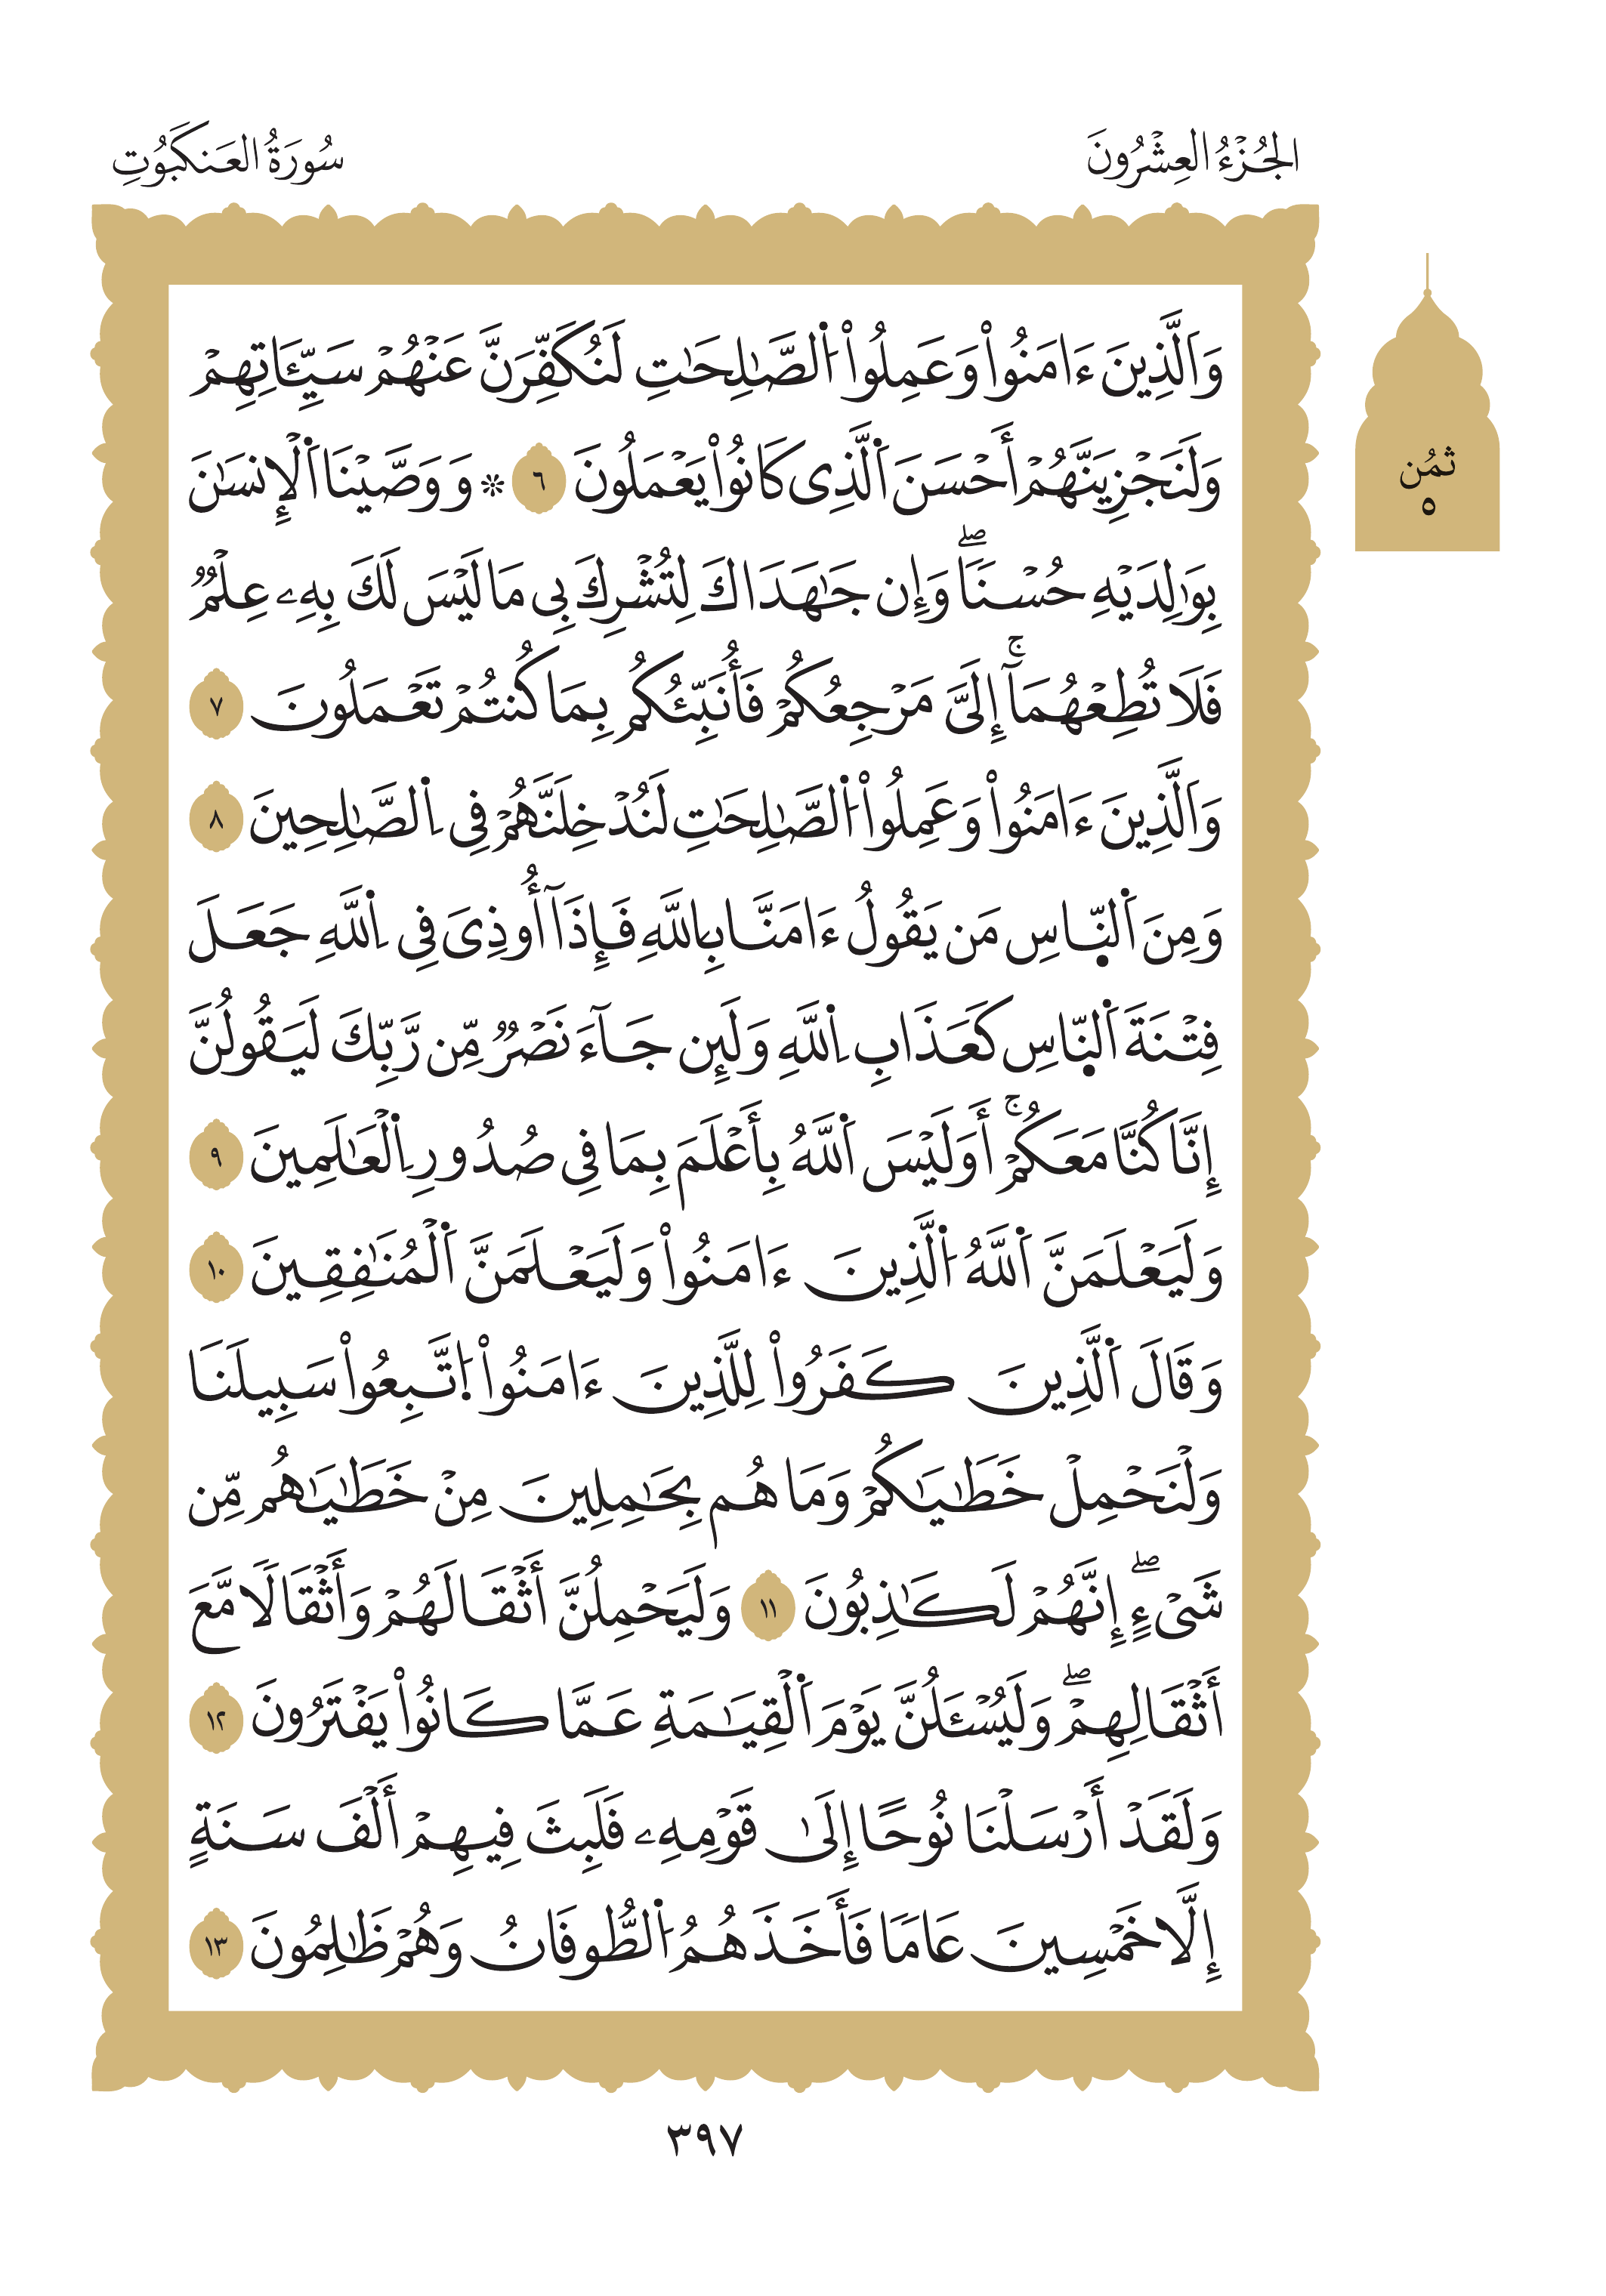 الجُزْءُ العِشْرُونَ
سُورَةُ العَنكَبُوتِ
ثُمُن
٥
وَاَلَّذِينَ ءَامَنُواْ وَعَمِلُواْ اُ۬لصَّٰلِحَٰتِ لَنُكَفِّرَنَّ عَنْهُمْ سَيِّـَٔاتِهِمْ
وَلَنَجْزِيَنَّهُمْ أَحْسَنَ اَ۬لَّذِى كَانُواْ يَعْمَلُونَ ٦ ۞ وَوَصَّيْنَا اَ۬لْإِنسَٰنَ
بِوَٰلِدَيْهِ حُسْنٗاۖ وَإِن جَٰهَدَاكَ لِتُشْرِكَ بِى مَا لَيْسَ لَكَ بِهِۦ عِلْمٞ
فَلَا تُطِعْهُمَآۚ إِلَىَّ مَرْجِعُكُمْ فَأُنَبِّئُكُم بِمَا كُنتُمْ تَعْمَلُونَ ٧
وَاَلَّذِينَ ءَامَنُواْ وَعَمِلُواْ اُ۬لصَّٰلِحَٰتِ لَنُدْخِلَنَّهُمْ فِى اِ۬لصَّٰلِحِينَ ٨
وَمِنَ اَ۬لنَّاسِ مَن يَقُولُ ءَامَنَّا بِاللَّهِ فَإِذَآ أُوذِىَ فِى اِ۬للَّهِ جَعَلَ
فِتْنَةَ اَ۬لنَّاسِ كَعَذَابِ اِ۬للَّهِ وَلَئِن جَآءَ نَصْرٞ مِّن رَّبِّكَ لَيَقُولُنَّ
إِنَّا كُنَّا مَعَكُمْۚ أَوَلَيْسَ اَ۬للَّهُ بِأَعْلَمَ بِمَا فِى صُدُورِ اِ۬لْعَٰلَمِينَ ٩
وَلَيَعْلَمَنَّ اَ۬للَّهُ اُ۬لَّذِينَ ءَامَنُواْ وَلَيَعْلَمَنَّ اَ۬لْمُنَٰفِقِينَ ١٠
وَقَالَ اَ۬لَّذِينَ كَفَرُواْ لِلَّذِينَ ءَامَنُواْ اُ۪تَّبِعُواْ سَبِيلَنَا
وَلْنَحْمِلْ خَطَٰيَٰكُمْ وَمَا هُم بِحَٰمِلِينَ مِنْ خَطَٰيَٰهُم مِّن
شَىْءٍۖ إِنَّهُمْ لَكَٰذِبُونَ ١١ وَلَيَحْمِلُنَّ أَثْقَالَهُمْ وَأَثْقَالٗا مَّعَ
أَثْقَالِهِمْۖ وَلَيُسْـَٔلُنَّ يَوْمَ اَ۬لْقِيَٰمَةِ عَمَّا كَانُواْ يَفْتَرُونَ ١٢
وَلَقَدْ أَرْسَلْنَا نُوحًا إِلَىٰ قَوْمِهِۦ فَلَبِثَ فِيهِمْ أَلْفَ سَنَةٍ
إِلَّا خَمْسِينَ عَامٗا فَأَخَذَهُمُ اُ۬لطُّوفَانُ وَهُمْ ظَٰلِمُونَ ١٣
٣٩٧